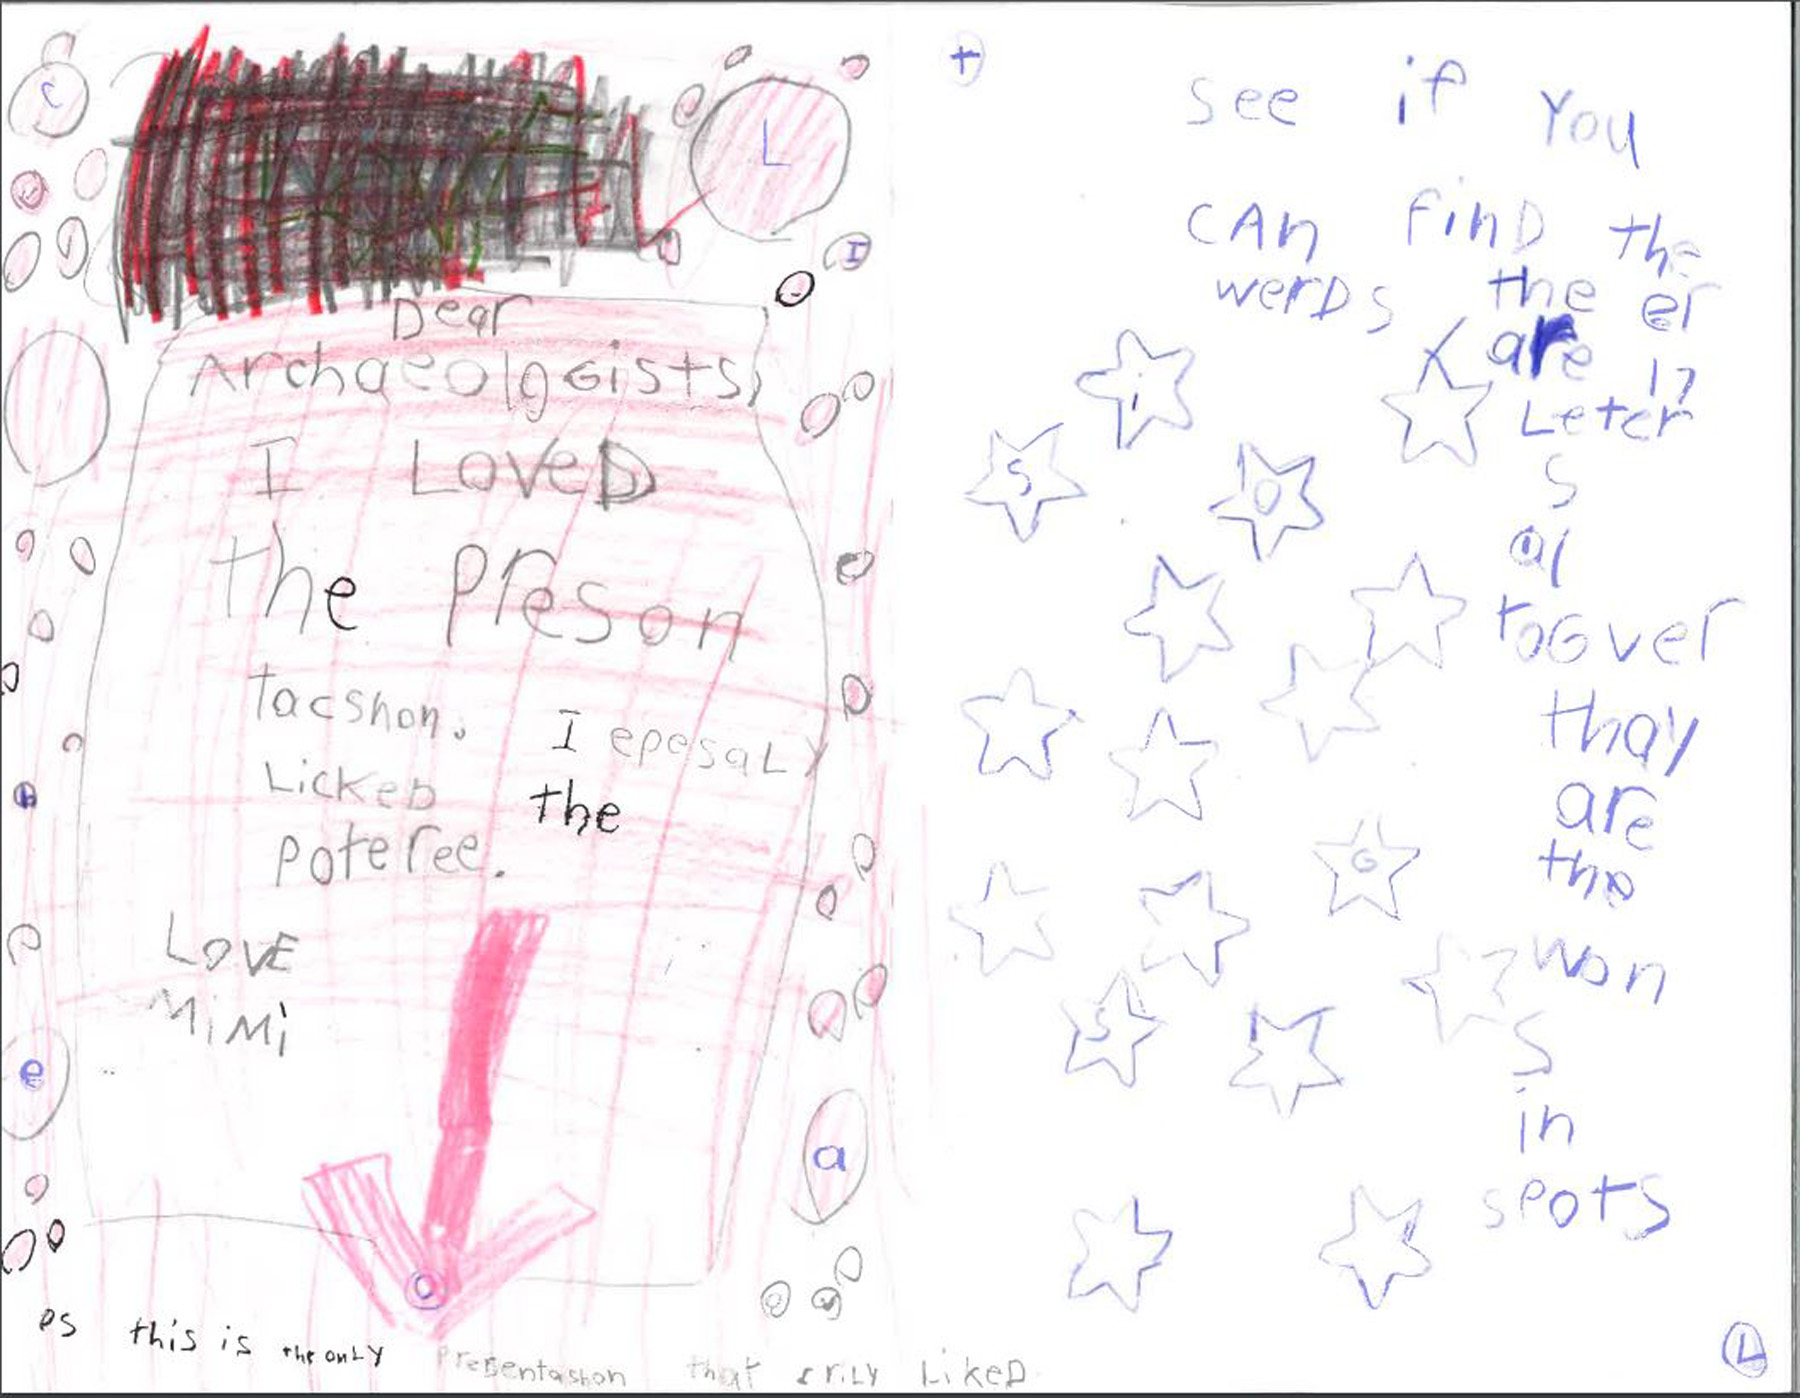 Dear
Archaeolgists,
I LoveD
the preson
tacshon. I epesaLy
LickeD the
poteree.
Love
MiMi
PS this is the onLy presentashon that rriLy LikeD
C
L
I
e
a
o
t
See if You
CAn FinD the
werDs the er
are 17
Leter
S
al
toGver
thay
are
the
won
S
in
spots
S
O
G
S
L